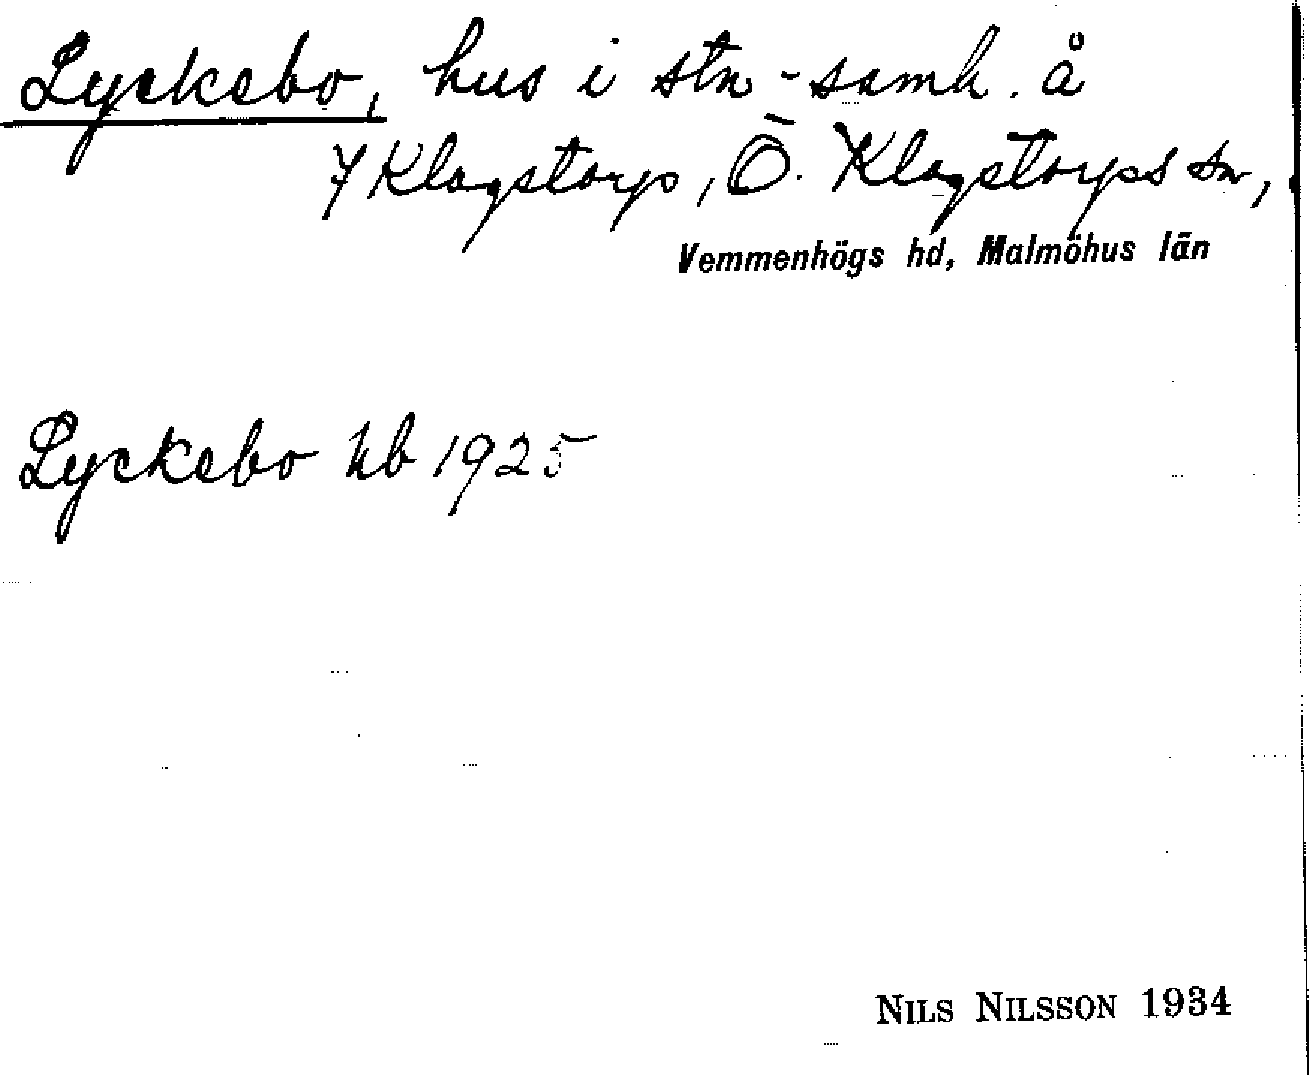 Lyckebo, hus i stn-samh. å
7 Klagstorp, Ö. Klagstorps sn,
Vemmenhögs hd, Malmöhus län
Lyckebo hb 1925
NILS NILSSON 1934